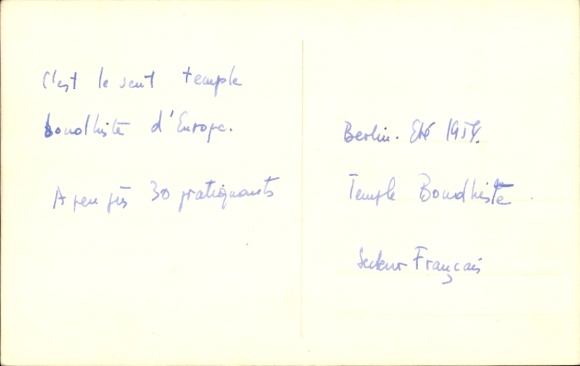 C'est le seul temple
boudhiste d'Europe.
A peu près 30 pratiquants
Berlin. Eté 1954.
Temple Boudhiste
Secteur Français